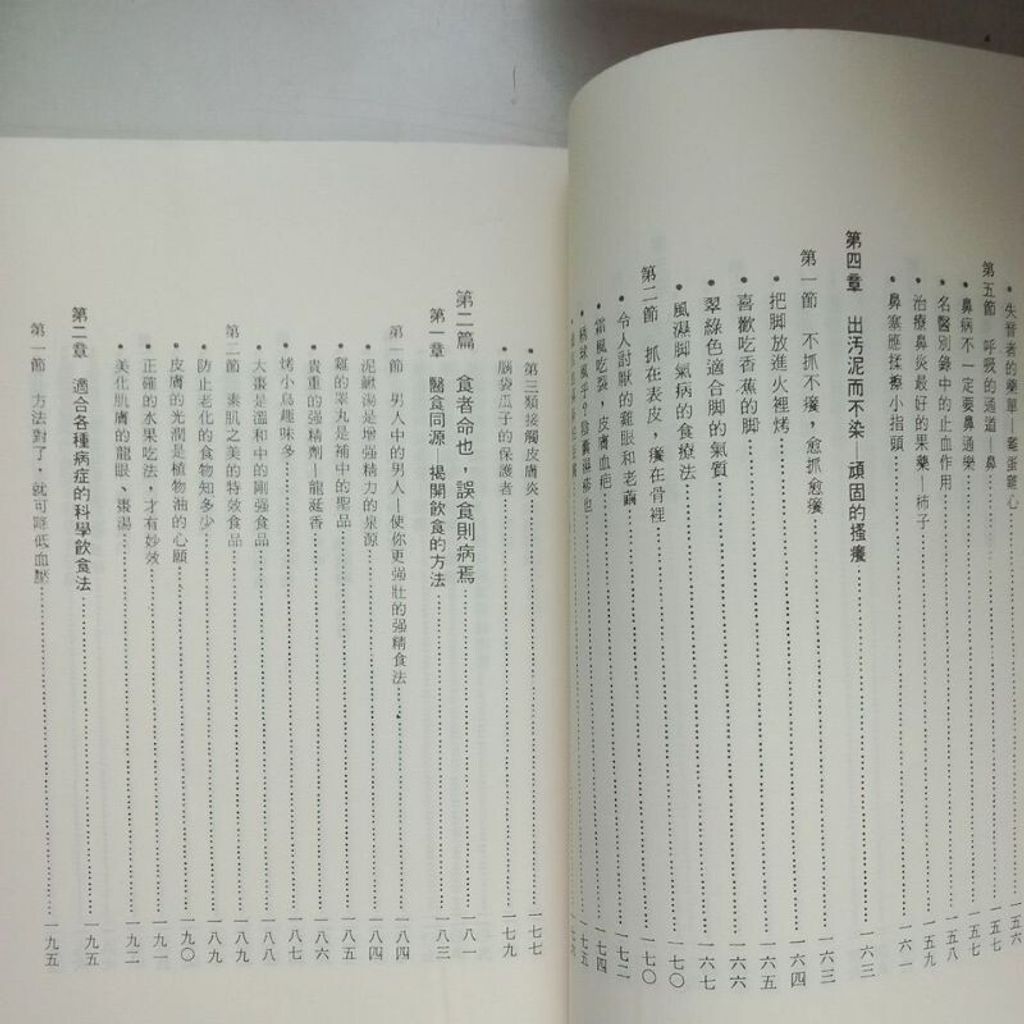 •失音者的藥單—雞蛋雞心……一五六
第五節　呼吸的通道—鼻……一五七
•鼻病不一定要鼻通樂……一五七
•名醫別錄中的止血作用……一五九
•治療鼻炎最好的果藥—柿子……一五九
•鼻塞應揉擦小指頭……一六一
第四章　出汚泥而不染—頑固的搔癢……一六三
第一節　不抓不癢，愈抓愈癢……一六三
•把脚放進火裡烤……一六四
•喜歡吃香蕉的脚……一六五
•翠綠色適合脚的氣質……一六六
•風濕脚氣病的食療法……一六七
第二節　抓在表皮，癢在骨裡……一七〇
•令人討厭的雞眼和老繭……一七〇
•霜風吃裂，皮膚血疤……一七二
•綉球風乎？陰囊濕疹也……一七四
•第三類接觸皮膚炎……一七七
•腦袋瓜子的保護者……一七九
第二篇　食者命也，誤食則病焉……一八一
第一章　醫食同源—揭開飲食的方法……一八三
第一節　男人中的男人—使你更强壯的强精食法……一八四
•泥鰍湯是增强精力的泉源……一八四
•雞的睪丸是補中的聖品……一八五
•貴重的强精劑—龍涎香……一八六
•烤小鳥趣味多……一八七
•大棗是溫和中的剛强食品……一八八
第二節　素肌之美的特效食品……一八九
•防止老化的食物知多少……一八九
•皮膚的光潤是植物油的心願……一九〇
•正確的水果吃法，才有妙效……一九一
•美化肌膚的龍眼、棗湯……一九二
第二章　適合各種病症的科學飲食法……一九五
第一節　方法對了，就可降低血壓……一九五